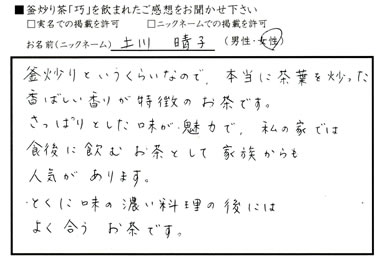 ■釜炒り茶「巧」を飲まれたご感想をお聞かせ下さい
□実名での掲載を許可 □ニックネームでの掲載を許可
お名前(ニックネーム) 土川 晴子 (男性・女性)
釜炒りというくらいなので、本当に茶葉を炒った
香ばしい香りが特徴のお茶です。
さっぱりとした味が魅力で、私の家では
食後に飲むお茶として家族からも
人気があります。
とくに味の濃い料理の後には
よく合うお茶です。